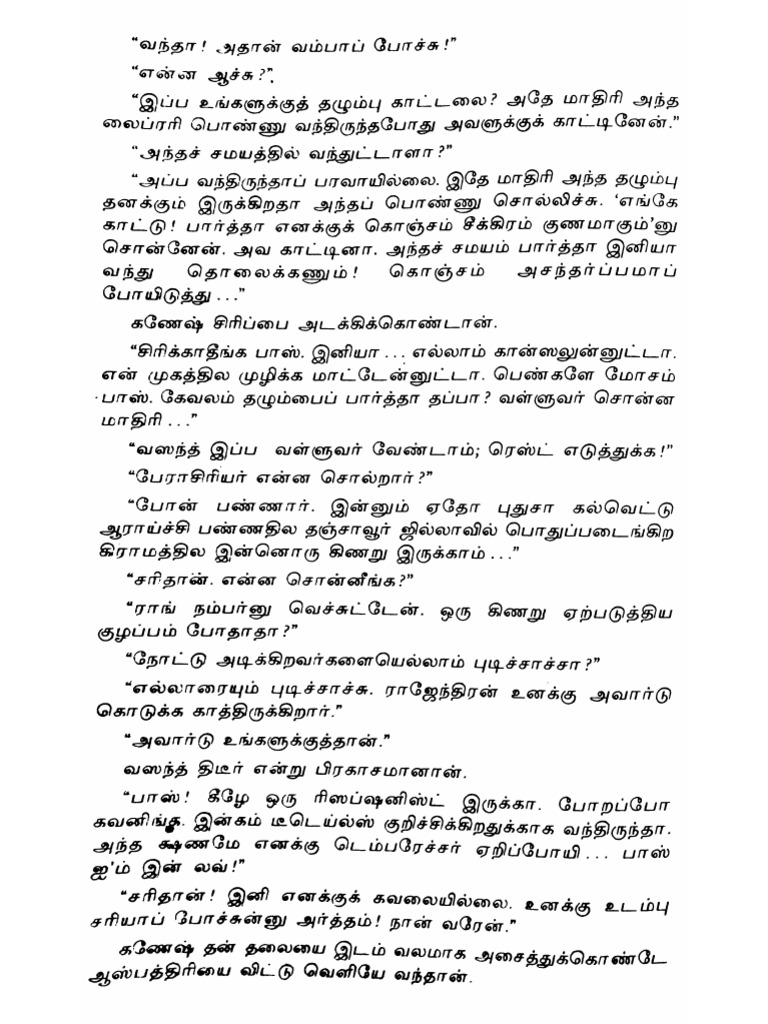 “வந்தா! அதான் வம்பாப் போச்சு!”
“என்ன ஆச்சு?”.
“இப்ப உங்களுக்குத் தழும்பு காட்டலை? அதே மாதிரி அந்த
லைப்ரரி பொண்ணு வந்திருந்தபோது அவளுக்குக் காட்டினேன்.”
“அந்தச் சமயத்தில் வந்துட்டாளா?”
“அப்ப வந்திருந்தாப் பரவாயில்லை. இதே மாதிரி அந்த தழும்பு
தனக்கும் இருக்கிறதா அந்தப் பொண்ணு சொல்லிச்சு. ‘எங்கே
காட்டு! பார்த்தா எனக்குக் கொஞ்சம் சீக்கிரம் குணமாகும்’னு
சொன்னேன். அவ காட்டினா. அந்தச் சமயம் பார்த்தா இனியா
வந்து தொலைக்கணும்! கொஞ்சம் அசந்தர்ப்பமாப்
போயிடுத்து...”
கணேஷ் சிரிப்பை அடக்கிக்கொண்டான்.
“சிரிக்காதீங்க பாஸ். இனியா... எல்லாம் கான்ஸலுன்னுட்டா.
என் முகத்தில முழிக்க மாட்டேன்னுட்டா. பெண்களே மோசம்
பாஸ். கேவலம் தழும்பைப் பார்த்தா தப்பா? வள்ளுவர் சொன்ன
மாதிரி...”
“வஸந்த் இப்ப வள்ளுவர் வேண்டாம்; ரெஸ்ட் எடுத்துக்க!”
“பேராசிரியர் என்ன சொல்றார்?”
“போன் பண்ணார். இன்னும் ஏதோ புதுசா கல்வெட்டு
ஆராய்ச்சி பண்ணதில தஞ்சாவூர் ஜில்லாவில் பொதுப்படைங்கிற
கிராமத்தில இன்னொரு கிணறு இருக்காம்...”
“சரிதான். என்ன சொன்னீங்க?”
“ராங் நம்பர்னு வெச்சுட்டேன். ஒரு கிணறு ஏற்படுத்திய
குழப்பம் போதாதா?”
“நோட்டு அடிக்கிறவர்களையெல்லாம் புடிச்சாச்சா?”
“எல்லாரையும் புடிச்சாச்சு. ராஜேந்திரன் உனக்கு அவார்டு
கொடுக்க காத்திருக்கிறார்.”
“அவார்டு உங்களுக்குத்தான்.”
வஸந்த் திடீர் என்று பிரகாசமானான்.
“பாஸ்! கீழே ஒரு ரிஸப்ஷனிஸ்ட் இருக்கா. போறப்போ
கவனிங்க. இன்கம் டீடெய்ல்ஸ் குறிச்சிக்கிறதுக்காக வந்திருந்தா.
அந்த க்ஷணமே எனக்கு டெம்பரேச்சர் ஏறிப்போயி... பாஸ்
ஐ’ம் இன் லவ்!”
“சரிதான்! இனி எனக்குக் கவலையில்லை. உனக்கு உடம்பு
சரியாப் போச்சுன்னு அர்த்தம்! நான் வரேன்.”
கணேஷ் தன் தலையை இடம் வலமாக அசைத்துக்கொண்டே
ஆஸ்பத்திரியை விட்டு வெளியே வந்தான்.